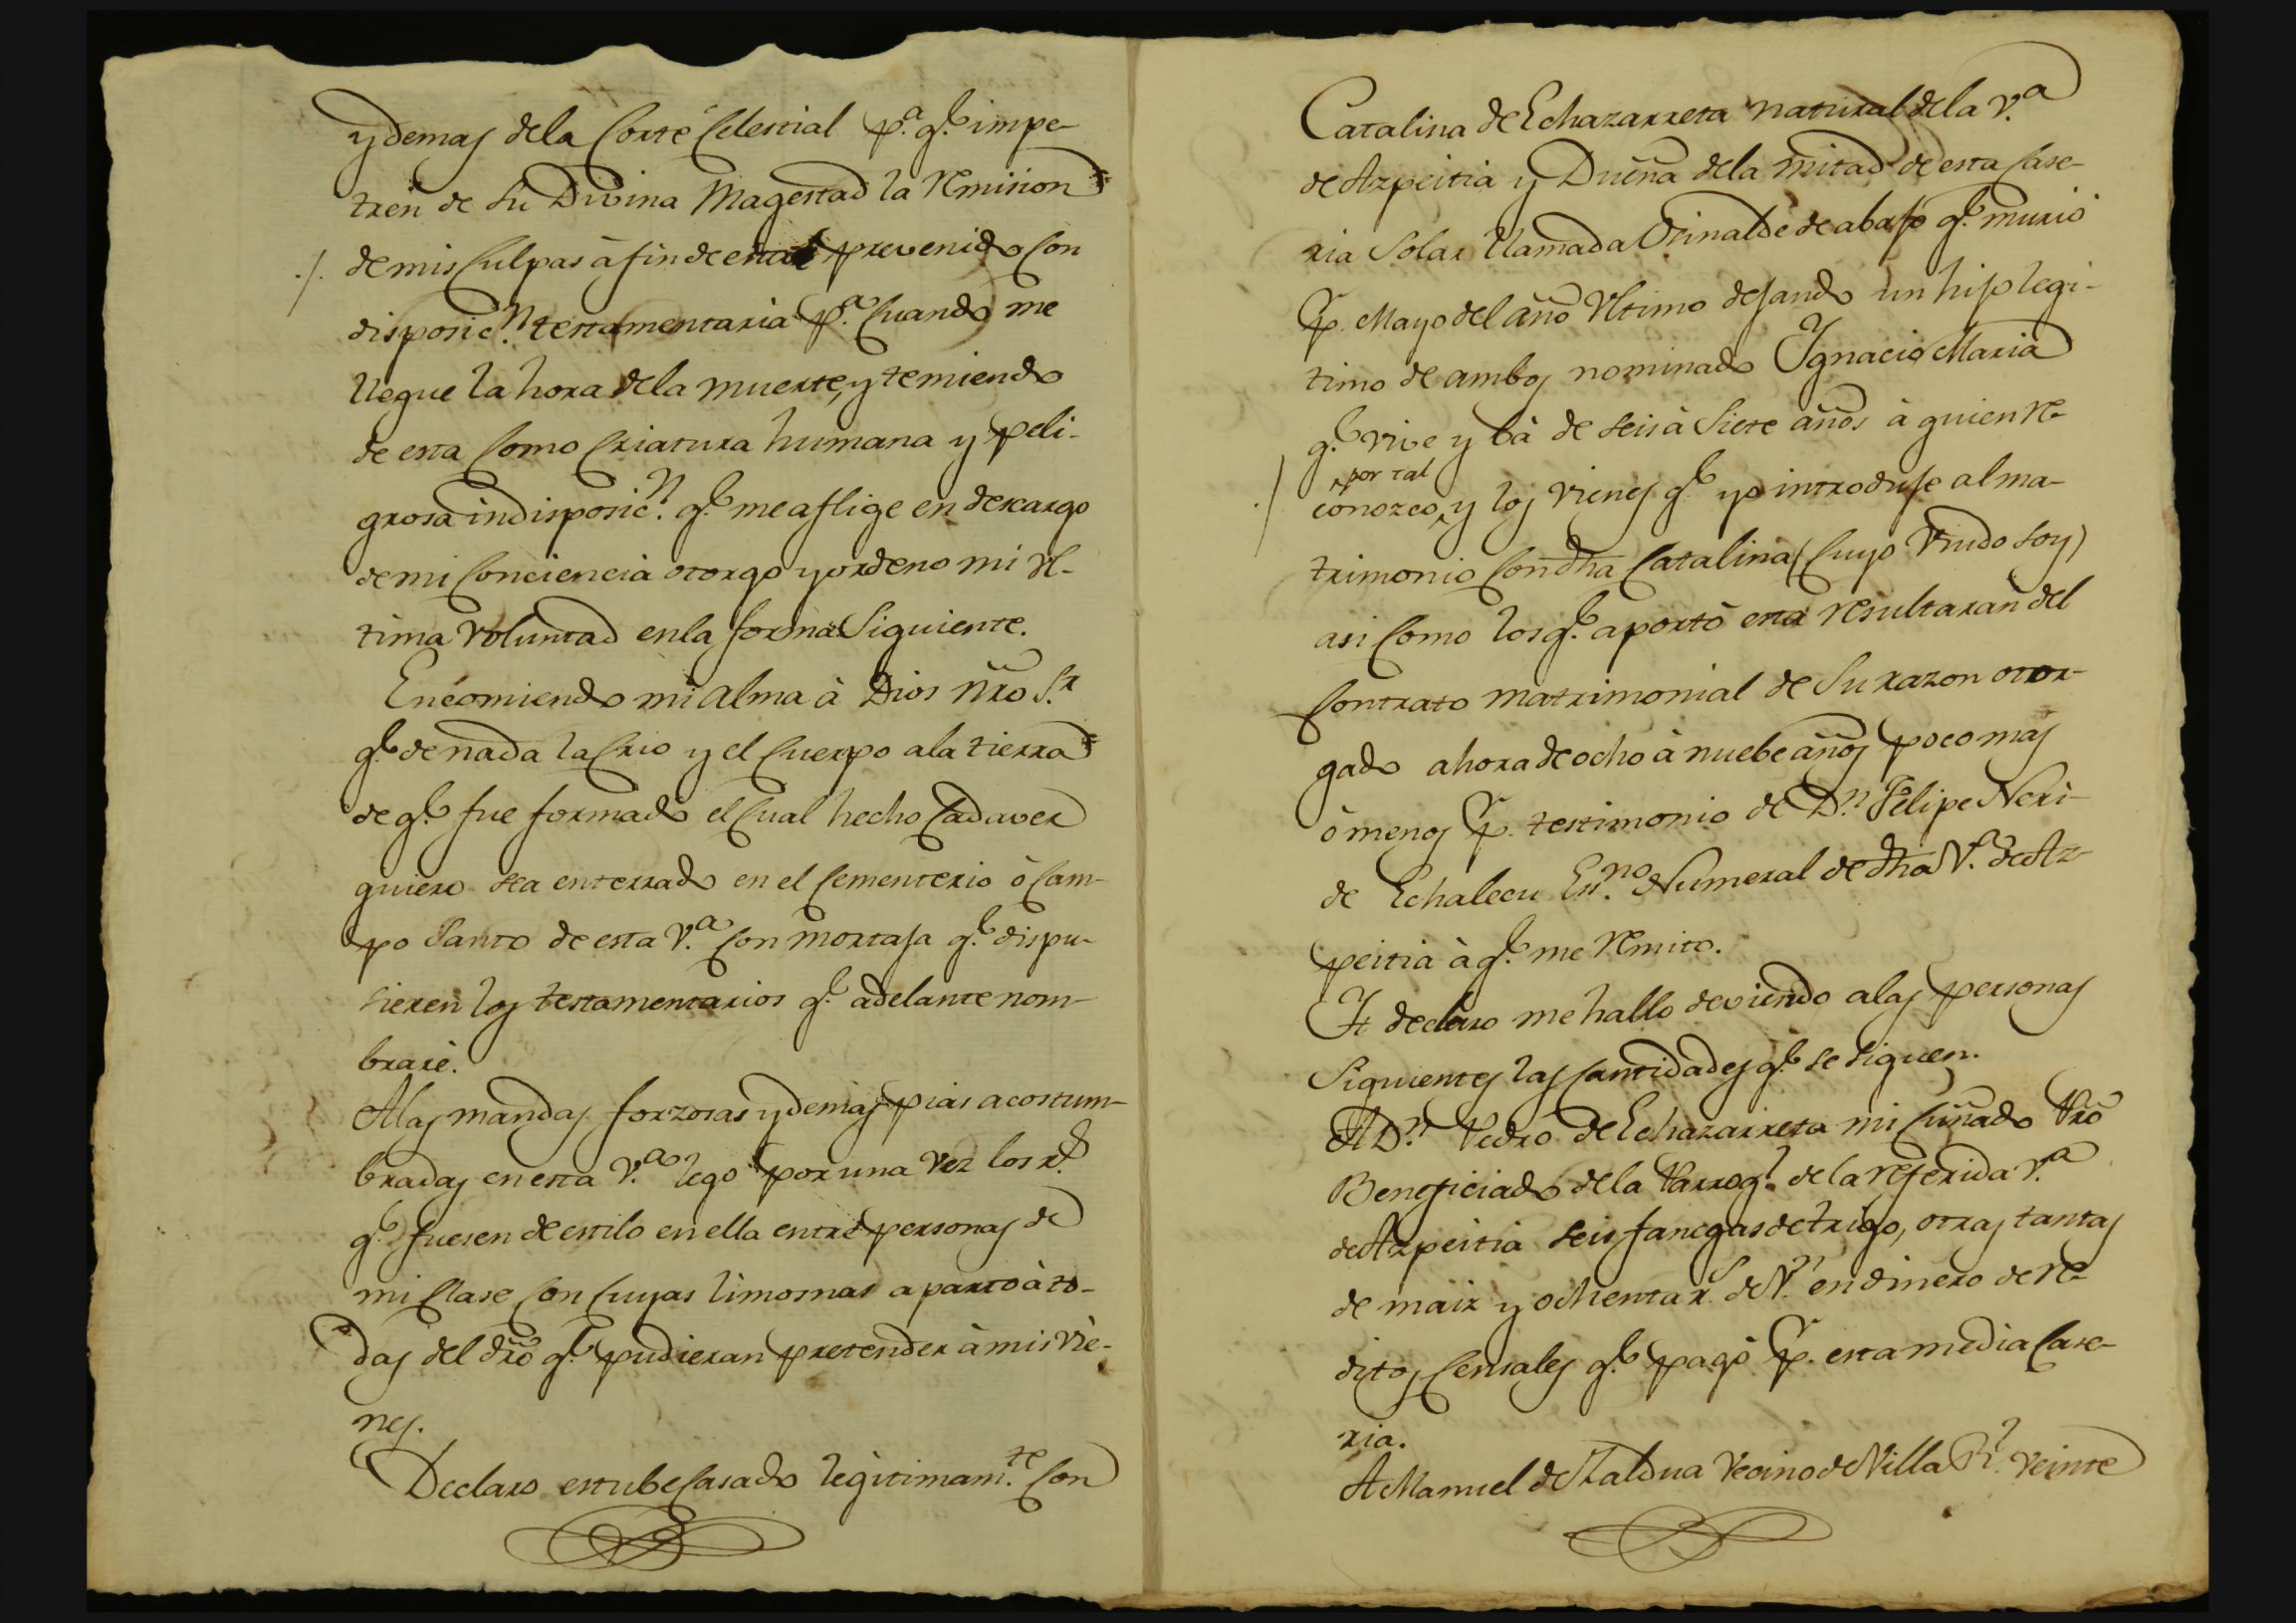 y demas de la Corte Celestial p.ª q.e impe-
tren de su Divina Magestad la remision
de mis Culpas à fin de estar prevenido con
disposic.n testamentaria p.ª Cuando me
llegue la hora de la muerte, y temiendo
de esta Como Criatura humana y peli-
grosa indisposic.n q.e me aflige en descargo
de mi Conciencia otorgo y ordeno mi ul-
tima voluntad en la forma Siguiente.
Encomiendo mi alma à Dios ñro S.r
q.e de nada la Crio y el Cuerpo a la tierra
de q.e fue formado el Cual hecho Cadaver
quiero sea enterrado en el Cementerio ò Cam-
po Santo de esta V.ª Con mortaja q.e dispu-
sieren los testamentarios q.e adelante nom-
braré.
A las mandas forzosas y demas pias acostum-
bradas en esta V.ª lego por una vez los r.s
q.e fuesen de estilo en ella entre personas de
mi Clase Con Cuyas limosnas aparto à to-
das del dro q.e pudieran pretender à mis vie-
nes.
Declaro estube Casado legitimam.te Con
Catalina de Echazarreta natural de la V.ª
de Azpeitia y Dueña de la mitad de esta Case-
ria Solar llamada de abajo q.e murió
p.r Mayo del año ultimo dejando un hijo legi-
timo de ambos nominado Ygnacio Maria
q.e vive y bà de seis à Siete años à quien re-
por tal
conozco, y los vienes q.e yo introduje al ma-
trimonio Con dha Catalina (Cuyo viudo soy)
asi Como los q.e aportó esta resultaran del
Contrato matrimonial de Su razon otor-
gado ahora de ocho à nuebe años poco mas
ò menos p.r testimonio de D.n Felipe Neri
de Echalecu Es.no Numeral de dha V.ª de Az-
peitia à q.e me remito.
Yt declaro me hallo deviendo a las personas
Siguientes las Cantidades q.e se siguen.
A D.n Pedro de Echazarreta mi Cuñado Pro
Beneficiado de la Parroq.l de la referida V.ª
de Azpeitia seis fanegas de trigo, otras tantas
de maiz y ochenta r.s de V.n en dinero de re-
ditos Censales q.e pagó p.r esta media Case-
ria.
A Manuel de Zaldua vecino de Villa R.l veinte